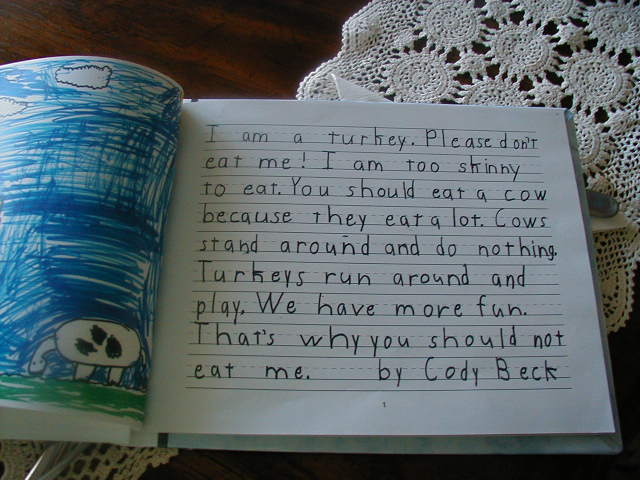 I am a turkey. Please don't
eat me! I am too skinny
to eat. You should eat a cow
because they eat a lot. Cows
stand around and do nothing.
Turkeys run around and
play. We have more fun.
That's why you should not
eat me. by Cody Beck
1